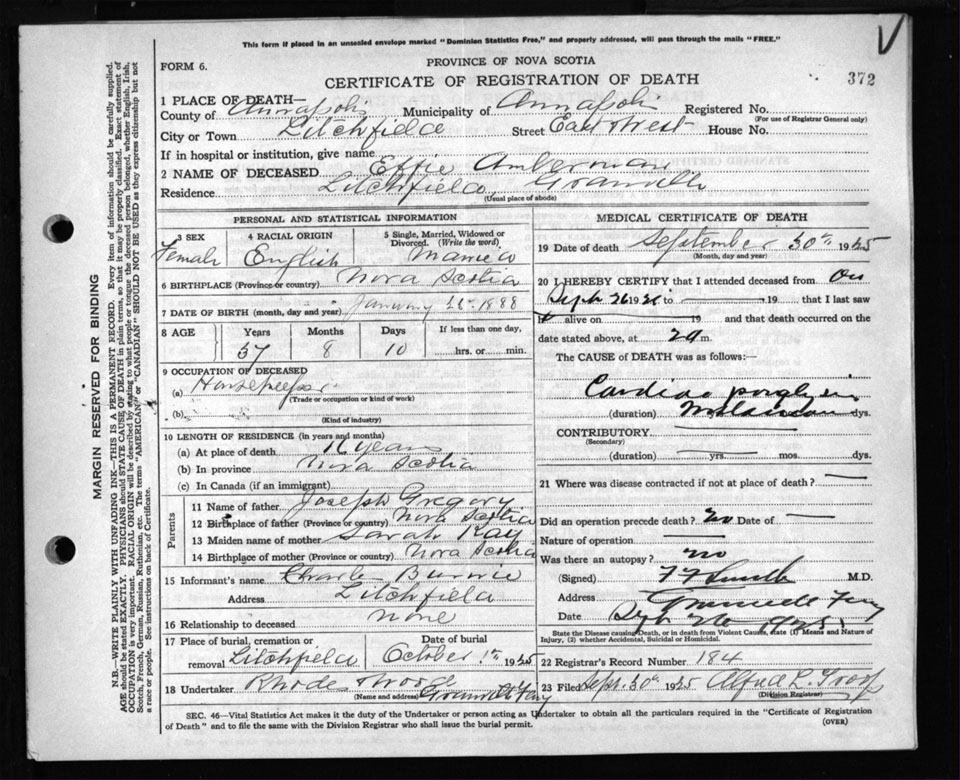 This form if placed in an unsealed envelope marked "Dominion Statistics Free," and properly addressed, will pass through the mails "FREE."
V
FORM 6.
PROVINCE OF NOVA SCOTIA
CERTIFICATE OF REGISTRATION OF DEATH
372
1 PLACE OF DEATH—
County of Annapolis Municipality of Annapolis Registered No.
(For use of Registrar General only)
City or Town Litchfield Street East & West House No.
If in hospital or institution, give name
2 NAME OF DECEASED Effie Amberman
Residence Litchfield, Granville
(Usual place of abode)
PERSONAL AND STATISTICAL INFORMATION
3 SEX
Female
4 RACIAL ORIGIN
English
5 Single, Married, Widowed or Divorced. (Write the word)
Married
6 BIRTHPLACE (Province or country) Nova Scotia
7 DATE OF BIRTH (month, day and year) January 1888
8 AGE Years Months Days If less than one day,
57 8 10 hrs. or min.
9 OCCUPATION OF DECEASED
(a) Housekeeper
(Trade or occupation or kind of work)
(b)
(Kind of industry)
10 LENGTH OF RESIDENCE (in years and months)
(a) At place of death 16 years
(b) In province Nova Scotia
(c) In Canada (if an immigrant)
Parents
11 Name of father Joseph Gregory
12 Birthplace of father (Province or country) Nova Scotia
13 Maiden name of mother Sarah Kay
14 Birthplace of mother (Province or country) Nova Scotia
15 Informant's name Charles
Address Litchfield
16 Relationship to deceased None
17 Place of burial, cremation or removal Litchfield
Date of burial
October 1st 1945
18 Undertaker Rhode
(Name and address) Granville Ferry
MEDICAL CERTIFICATE OF DEATH
19 Date of death September 30th 1945
(Month, day and year)
20 I HEREBY CERTIFY that I attended deceased from on
Sept 26 19 to — 19 that I last saw
alive on 19 and that death occurred on
date stated above, at m.
The CAUSE of DEATH was as follows:—
Cardiac
(duration) dys.
CONTRIBUTORY
(Secondary)
(duration) yrs. mos. dys.
21 Where was disease contracted if not at place of death? —
Did an operation precede death? no Date of —
Nature of operation —
Was there an autopsy? no
(Signed) M.D.
Address Granville Ferry
Date Sept 1945
State the Disease causing Death, or in death from Violent Causes, state (1) Means and Nature of Injury, (2) whether Accidental, Suicidal or Homicidal.
22 Registrar's Record Number 184
23 Filed Sept. 30th 1945 Alfred R. Troop
(Division Registrar)
SEC. 46—Vital Statistics Act makes it the duty of the Undertaker or person acting as Undertaker to obtain all the particulars required in the "Certificate of Registration
of Death" and to file the same with the Division Registrar who shall issue the burial permit. (OVER)
MARGIN RESERVED FOR BINDING
N.B.—WRITE PLAINLY WITH UNFADING INK—THIS IS A PERMANENT RECORD. Every item of information should be carefully supplied.
AGE should be stated EXACTLY. PHYSICIANS should STATE CAUSE OF DEATH in plain terms, so that it may be properly classified. Exact statement of
OCCUPATION is very important. RACIAL ORIGIN will be described by stating to what people or tongue the deceased person belonged, whether English, Irish,
Scotch, French, German, Russian, Ruthenian, etc. The terms "AMERICAN" or "CANADIAN" SHOULD NOT BE USED as they express citizenship but not
a race or people. See instructions on back of Certificate.